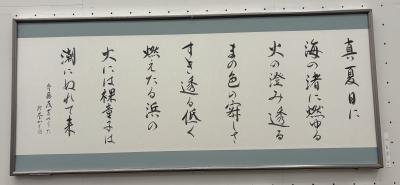 真夏日に
海の渚に燃ゆる
火の澄み透る
まの色の寂しさ
すき透る低く
燃えたる浜の
火には裸童子は
潮にぬれて来
斎藤茂吉のうた